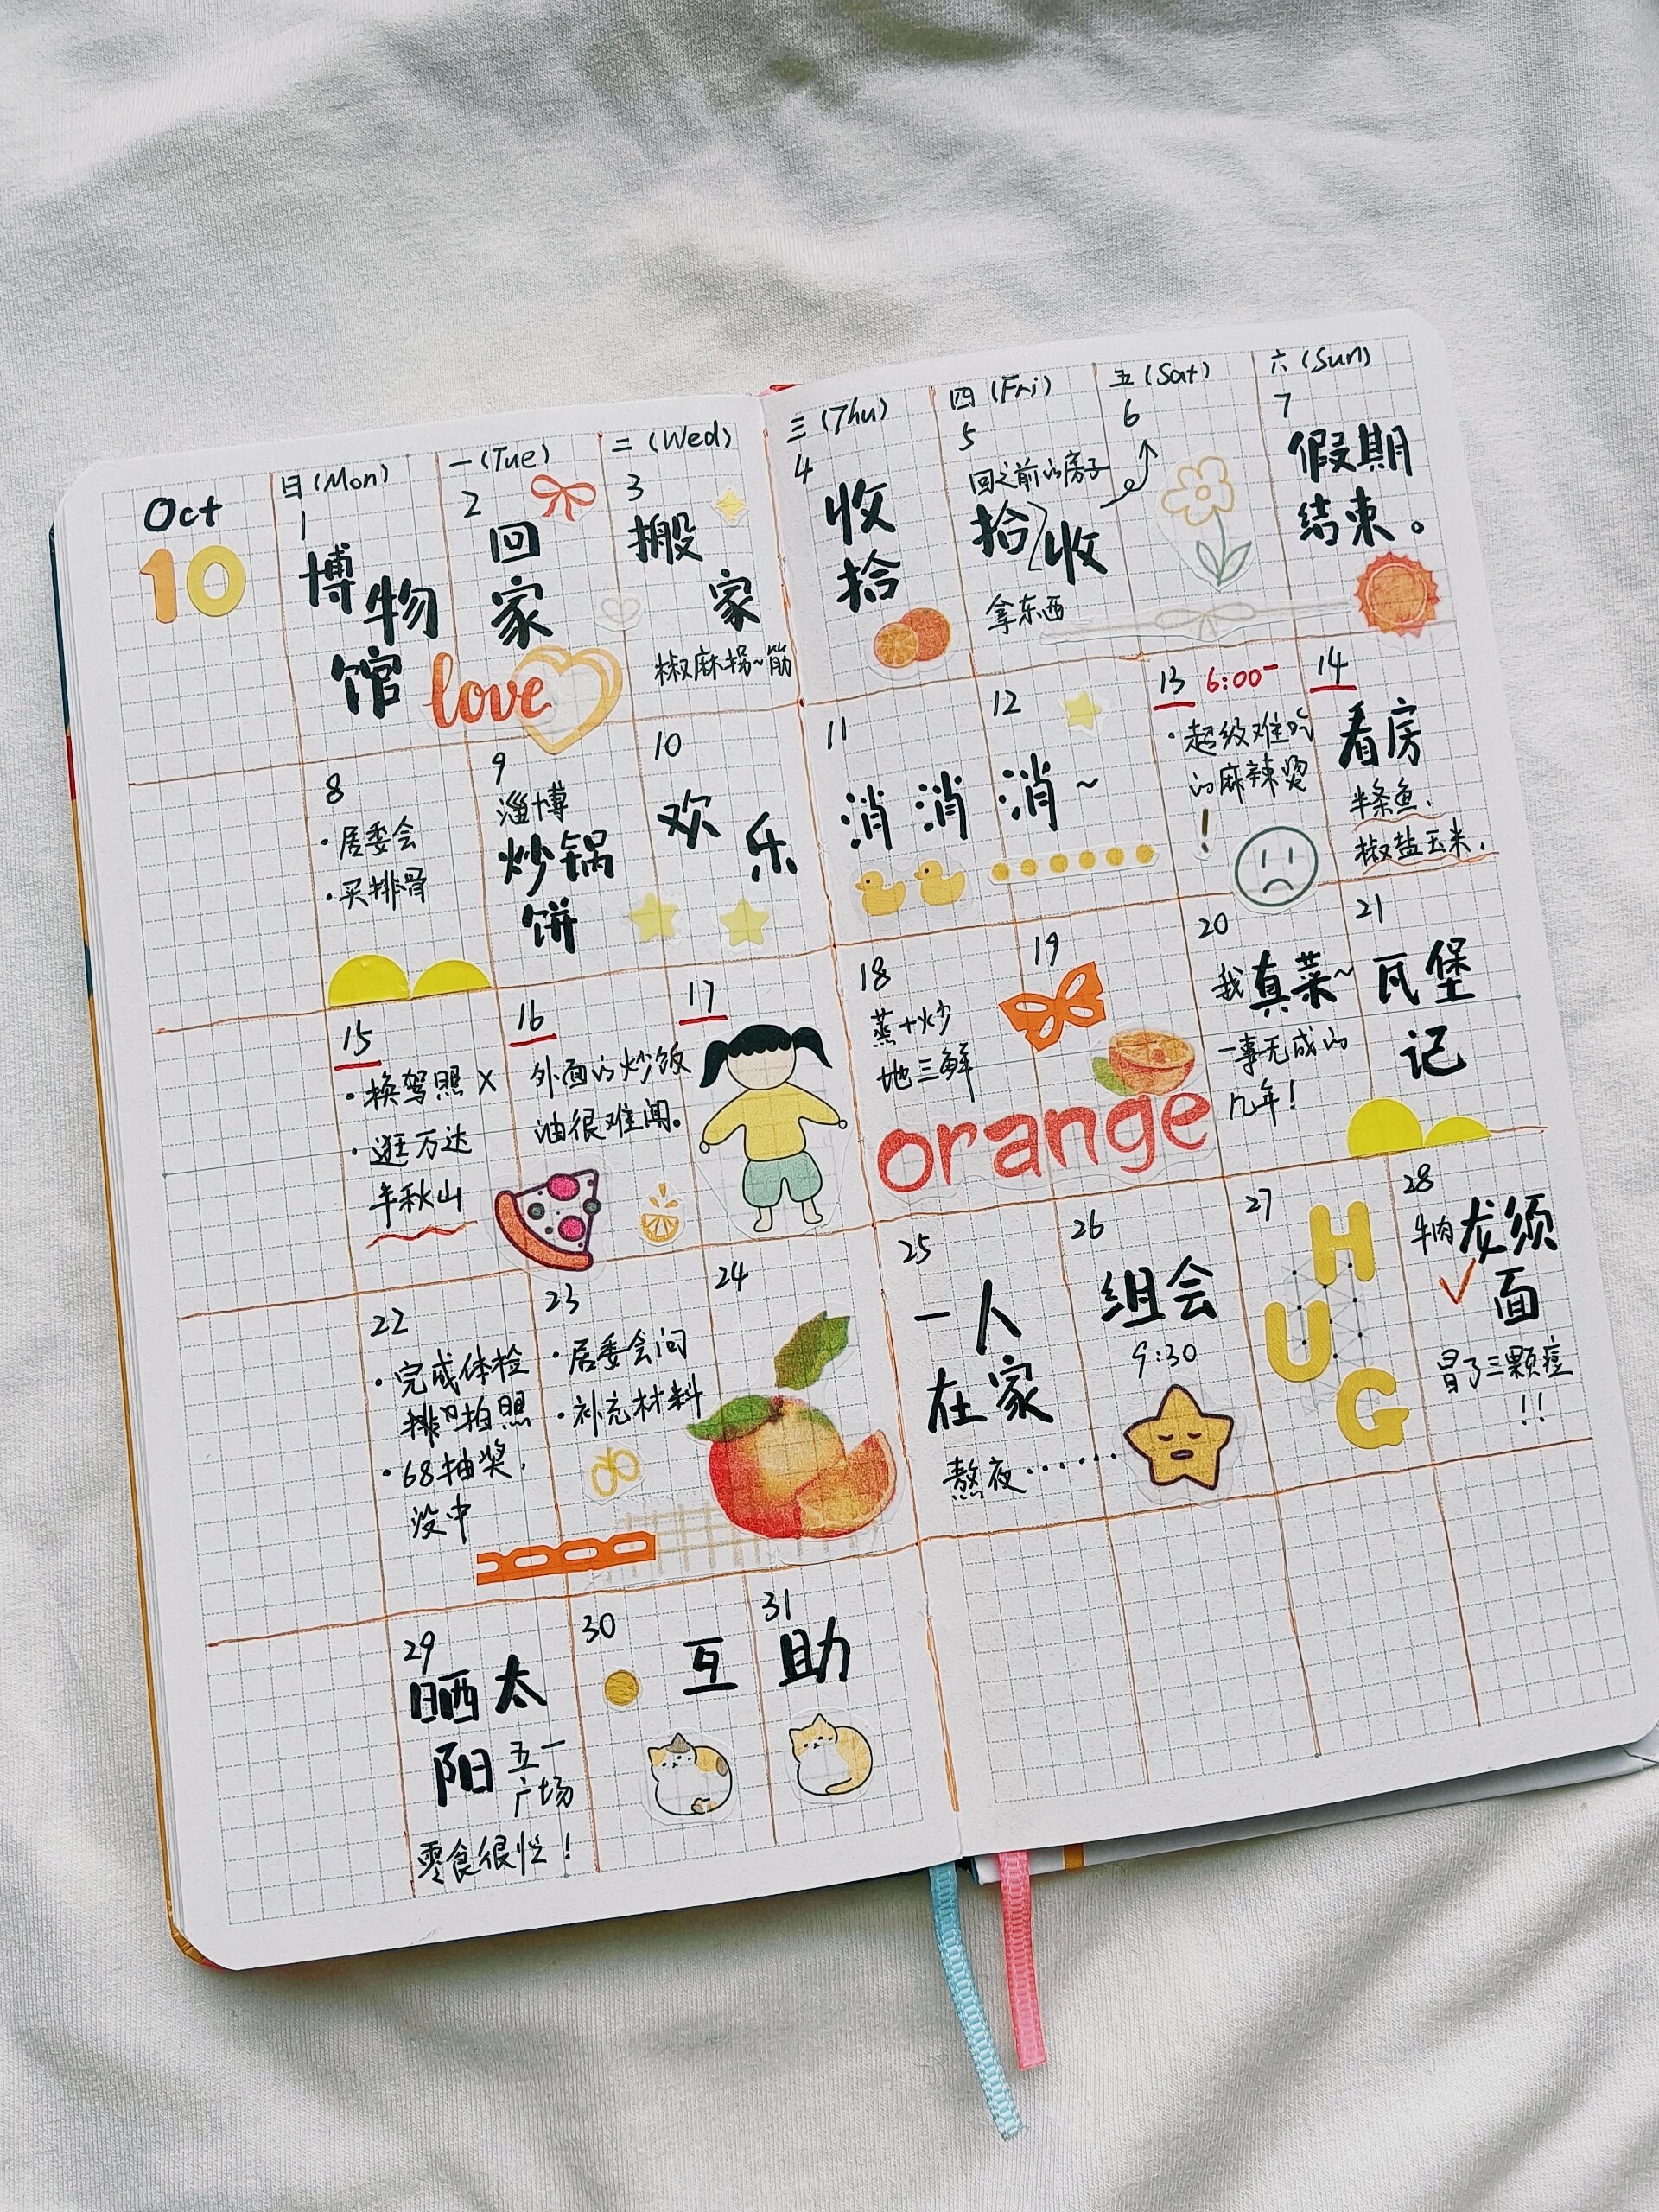 Oct
10
日(Mon)
一(Tue)
二(Wed)
三(Thu)
四(Fri)
五(Sat)
六(Sun)
1
博
物
馆
2
回
家
love
3
搬
家
椒麻拐~筋
4
收
拾
5
回之前的房子
拾
收
拿东西
6
7
假期
结束。
8
·居委会
·买排骨
9
淄博
炒锅
饼
10
欢
乐
11
消消
12
消~
13 6:00
·超级难吃
的麻辣烫
!
14
看房
半条鱼、
椒盐玉米、
15
·换驾照 X
·逛万达
半秋山
16
外面的炒饭
油很难闻。
17
18
蒸+炒
地三鲜
19
orange
20
我真菜~
一事无成的
几年!
21
瓦堡
记
22
·完成体检
排口拍照
·68抽奖,
没中
23
·居委会问
·补充材料
24
25
一人
在家
熬夜……
26
组会
9:30
27
H
U
G
28
牛肉龙须
面
冒了三颗痘
!!
29
晒太
阳 五一
广场
零食很烂!
30
互
31
助